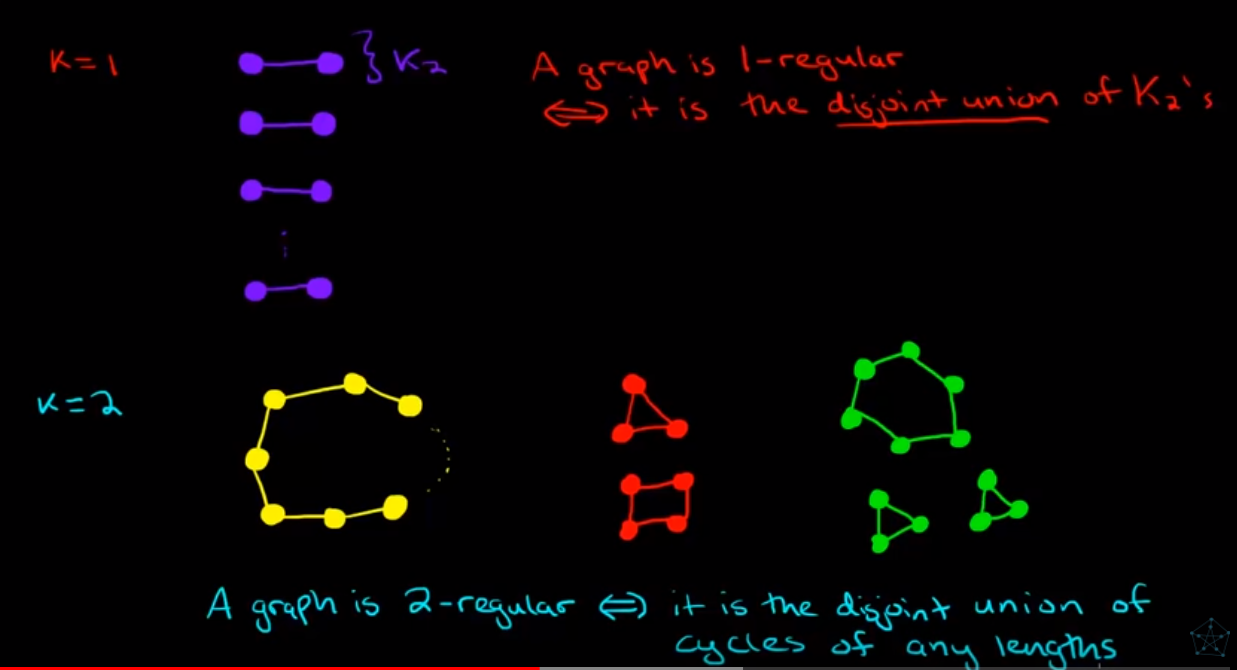 K=1
} K₂
A graph is 1-regular
⟺ it is the disjoint union of K₂'s
K=2
A graph is 2-regular ⟺ it is the disjoint union of
cycles of any lengths